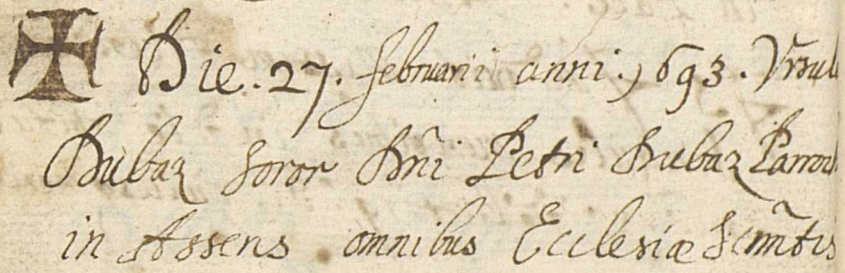 Die. 27. februarii anni. 1693. Vrsul
Dubaz Soror Dni Petri Dubaz Parroch
in Assens omnibus Ecclesiæ Scmtis